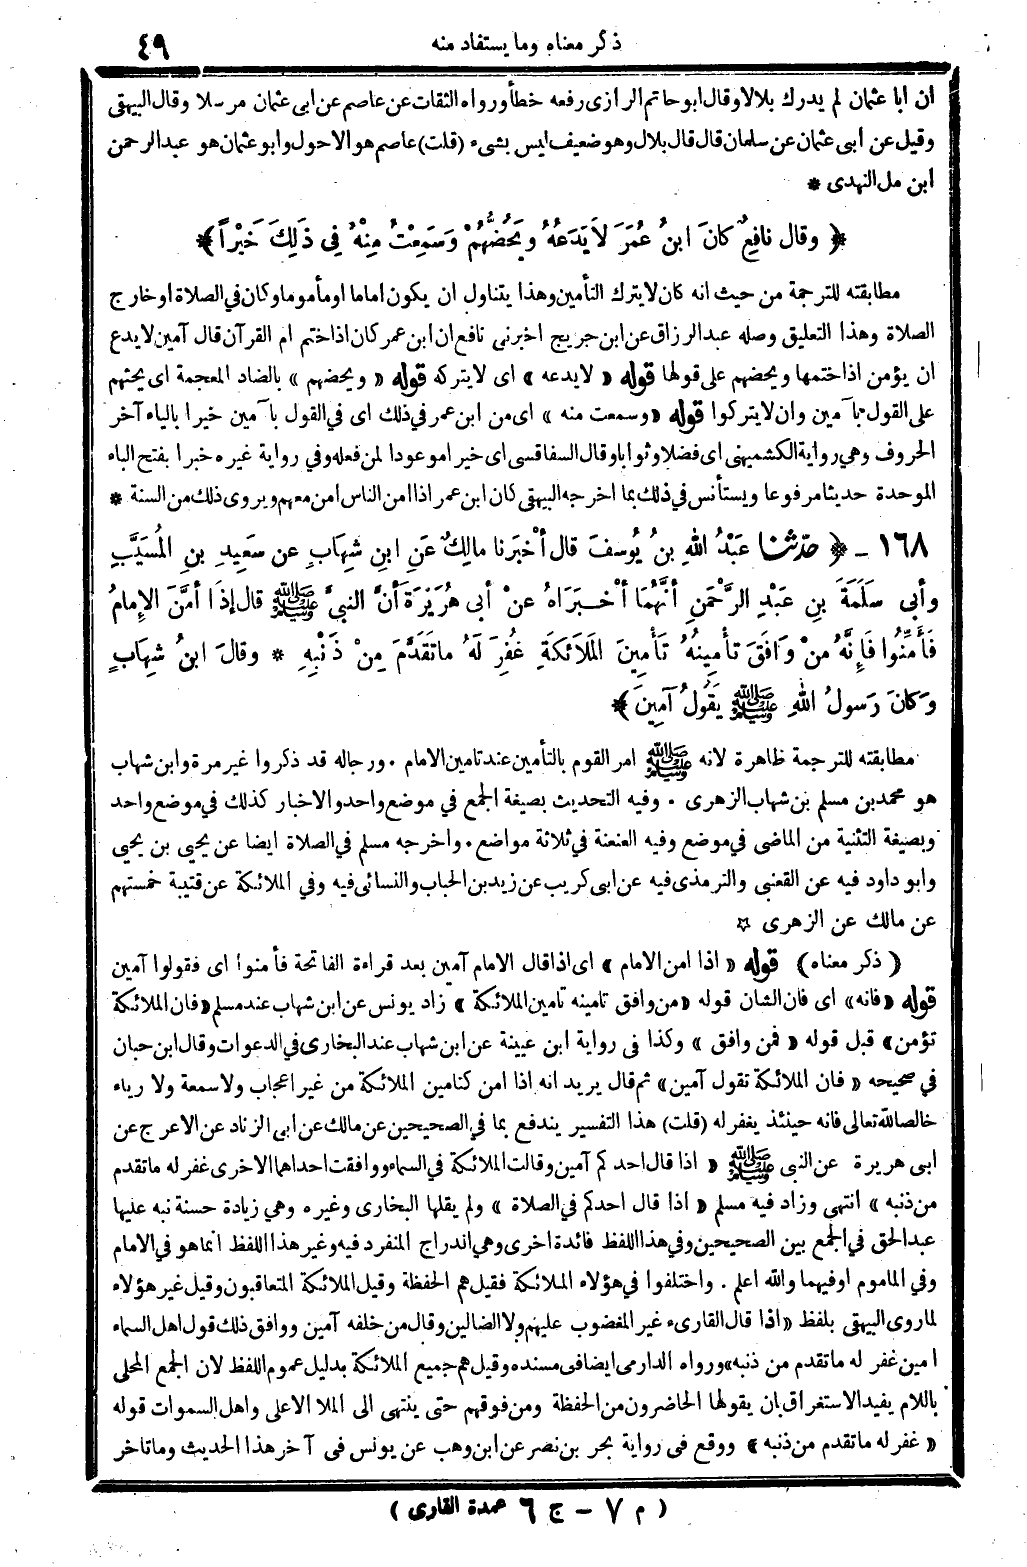 ذكر معناه وما يستفاد منه ٤٩
ان ابا عثمان لم يدرك بلالا وقال ابو حاتم الرازى رفعه خطأ ورواه الثقات عن عاصم عن ابى عثمان مرسلا وقال البيهقى
وقيل عن أبى عثمان عن سلمان قال قال بلال وهو ضعيف ليس بشىء (قلت) عاصم هو الاحول وابو عثمان هو عبد الرحمن
ابن مل النهدى *
﴿ وقال نافِعٌ كانَ ابنُ عُمَرَ لاَ يَدَعُهُ ويَحُضُّهُمْ وَسَمِعْتُ مِنْهُ فِي ذَلِكَ خَيْراً ﴾
مطابقته للترجمة من حيث انه كان لايترك التأمين وهذا يتناول ان يكون اماما او مأموما وكان في الصلاة او خارج
الصلاة وهذا التعليق وصله عبد الرزاق عن ابن جريج اخبرنى نافع ان ابن عمر كان اذا ختم ام القرآن قال آمين لايدع
ان يؤمن اذا ختمها ويحضهم على قولها قوله « لايدعه » اى لايتركه قوله « ويحضهم » بالضاد المعجمة اى يحثهم
على القول بآمين وان لايتركوا قوله «وسمعت منه » اى من ابن عمر في ذلك اى في القول بآمين خيرا بالياء آخر
الحروف وهي رواية الكشميهنى اى فضلا وثوابا وقال السفاقسى اى خيرا موعودا لمن فعله وفي رواية غيره خبرا بفتح الباء
الموحدة حديثا مرفوعا ويستأنس في ذلك بما اخرجه البيهقى كان ابن عمر اذا امن الناس امن معهم ويروى ذلك من السنة *
١٦٨ - ﴿ حدثنا عَبْدُ اللهِ بنُ يُوسفَ قال أخْبَرنا مالِكٌ عَنِ ابنِ شِهَابٍ عن سَعِيدِ بنِ المُسَيَّبِ
وأبي سَلَمَةَ بنِ عَبْدِ الرَّحْمَنِ أنَّهُمَا أخْبَرَاهُ عنْ أبي هُرَيْرَةَ أنَّ النبيَّ ﷺ قال إذَا أمَّنَ الإِمامُ
فَأمِّنُوا فَإِنَّهُ مَنْ وَافَقَ تأْمِينُهُ تَأْمِينَ المَلاَئكَةِ غُفِرَ لَهُ ما تَقَدَّمَ مِنْ ذَنْبِهِ * وقالَ ابنُ شِهَابٍ
وَكانَ رَسولُ اللهِ ﷺ يَقُولُ آمِينَ ﴾
مطابقته للترجمة ظاهرة لانه ﷺ امر القوم بالتأمين عند تامين الامام . ورجاله قد ذكروا غير مرة وابن شهاب
هو محمد بن مسلم بن شهاب الزهرى . وفيه التحديث بصيغة الجمع في موضع واحد والاخبار كذلك في موضع واحد
وبصيغة التثنية من الماضى في موضع وفيه العنعنة في ثلاثة مواضع . واخرجه مسلم في الصلاة ايضا عن يحيى بن يحيى
وابو داود فيه عن القعنبى والترمذى فيه عن ابى كريب عن زيد بن الحباب والنسائى فيه وفي الملائكة عن قتيبة خمستهم
عن مالك عن الزهرى ☆
( ذكر معناه ) قوله « اذا امن الامام » اى اذا قال الامام آمين بعد قراءة الفاتحة فأمنوا اى فقولوا آمين
قوله «فانه» اى فان الشان قوله «من وافق تامينه تامين الملائكة » زاد يونس عن ابن شهاب عند مسلم «فان الملائكة
تؤمن» قبل قوله « فمن وافق » وكذا فى رواية ابن عيينة عن ابن شهاب عند البخارى في الدعوات وقال ابن حبان
في صحيحه « فان الملائكة تقول آمين» ثم قال يريد انه اذا امن كتامين الملائكة من غير اعجاب ولا سمعة ولا رياء
خالصا لله تعالى فانه حينئذ يغفر له (قلت) هذا التفسير يندفع بما في الصحيحين عن مالك عن ابى الزناد عن الاعرج عن
ابى هريرة عن النبى ﷺ « اذا قال احدكم آمين وقالت الملائكة في السماء ووافقت احداهما الاخرى غفر له ما تقدم
من ذنبه » انتهى وزاد فيه مسلم « اذا قال احدكم في الصلاة » ولم يقلها البخارى وغيره وهي زيادة حسنة نبه عليها
عبد الحق في الجمع بين الصحيحين وفي هذا اللفظ فائدة اخرى وهي اندراج المنفرد فيه وغير هذا اللفظ انما هو في الامام
وفي الماموم او فيهما والله اعلم . واختلفوا في هؤلاء الملائكة فقيل هم الحفظة وقيل الملائكة المتعاقبون وقيل غير هؤلاء
لما روى البيهقى بلفظ « اذا قال القارىء غير المغضوب عليهم ولا الضالين وقال من خلفه آمين ووافق ذلك قول اهل السماء
امين غفر له ما تقدم من ذنبه» ورواه الدارمى ايضا في مسنده وقيل هم جميع الملائكة بدليل عموم اللفظ لان الجمع المحلى
باللام يفيد الاستغراق بان يقولها الحاضرون من الحفظة ومن فوقهم حتى ينتهى الى الملا الاعلى واهل السموات قوله
« غفر له ما تقدم من ذنبه » ووقع فى رواية بحر بن نصر عن ابن وهب عن يونس فى آخر هذا الحديث وما تاخر
( م ٧ - ج ٦ عمدة القارى )